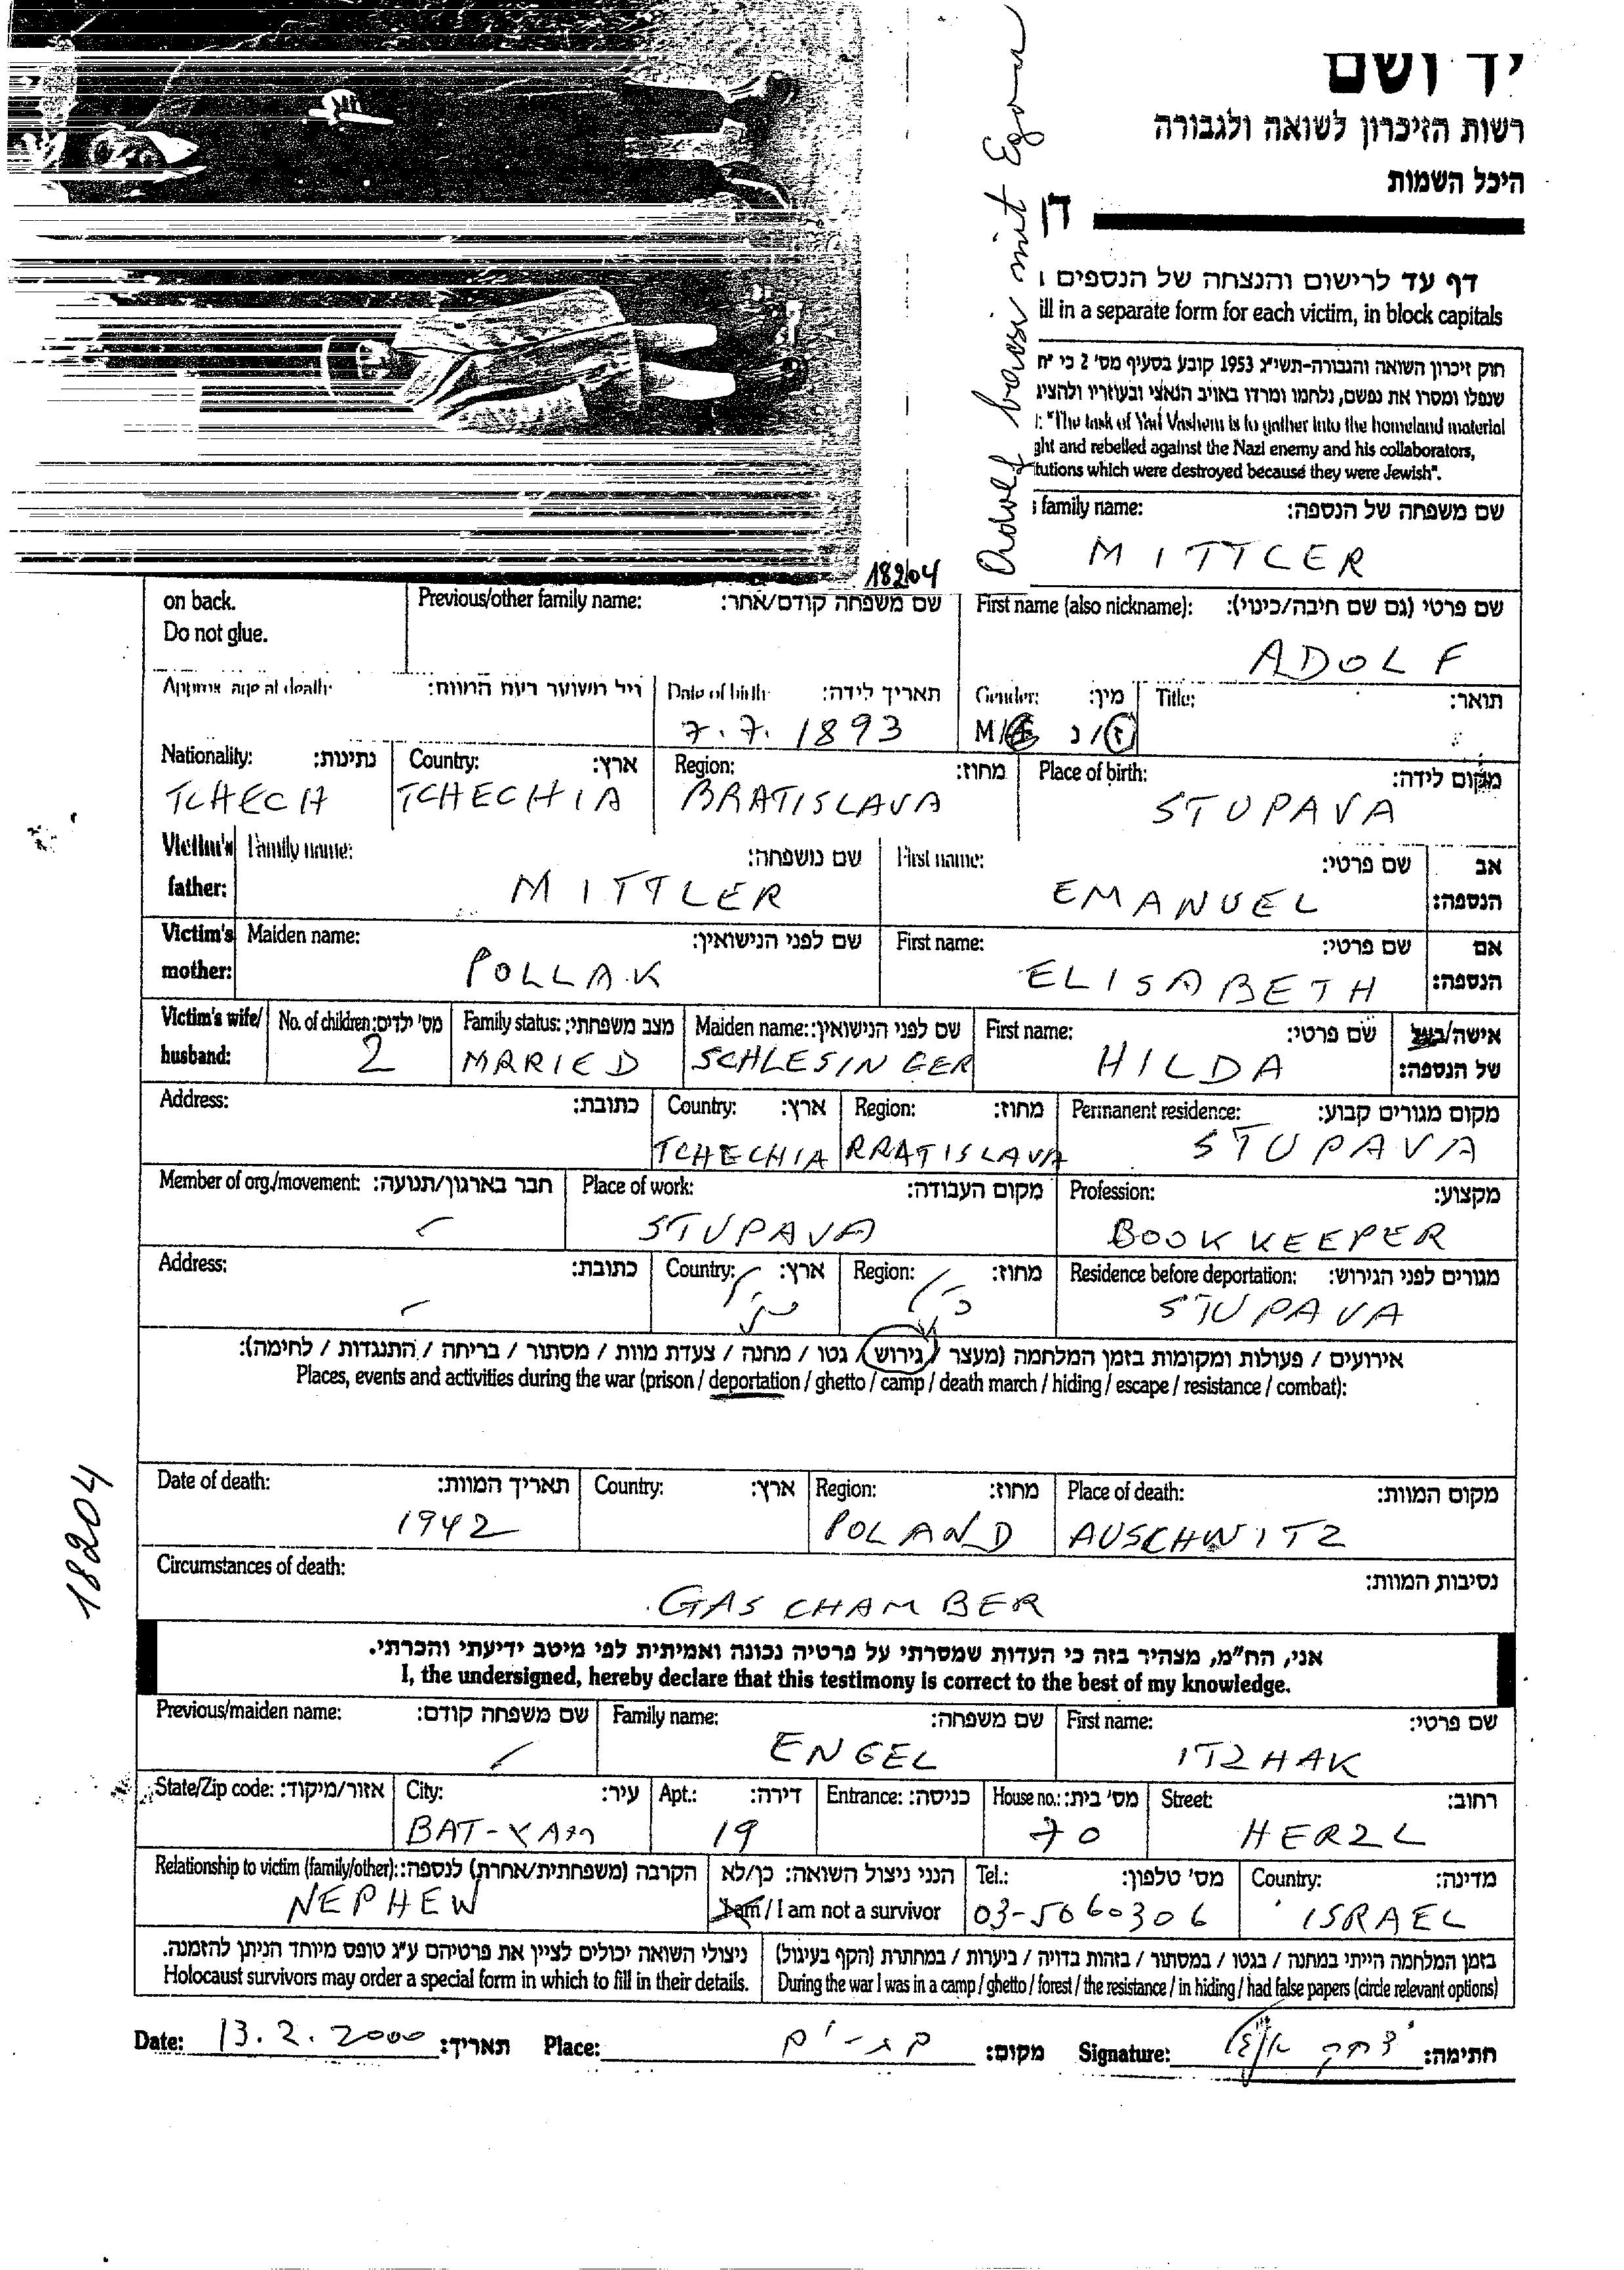 יד ושם
רשות הזיכרון לשואה ולגבורה
היכל השמות
דף עד לרישום והנצחה של הנספים
ill in a separate form for each victim, in block capitals
חוק זיכרון השואה והגבורה-תשי״ג 1953 קובע בסעיף מס' 2 כי
שנפלו ומסרו את נפשם, נלחמו ומרדו באויב הנאצי ובעוזריו ולהציג
"The task of Yad Vashem is to gather into the homeland material
ght and rebelled against the Nazi enemy and his collaborators,
tutions which were destroyed because they were Jewish".
Adolf mit Egon
family name: שם משפחה של הנספה:
MITTLER
18204
on back.
Do not glue.
Previous/other family name: שם משפחה קודם/אחר: First name (also nickname): שם פרטי (גם שם חיבה/כינוי):
ADOLF
Approx. age at death: גיל משוער בעת המוות: Date of birth: תאריך לידה: Gender: מין: Title: תואר:
7.7.1893 M/F ז/נ
Nationality: נתינות: Country: ארץ: Region: מחוז: Place of birth: מקום לידה:
TCHECH TCHECHIA BRATISLAVA STUPAVA
Victim's father: Family name: שם משפחה: First name: שם פרטי: אב הנספה:
MITTLER EMANUEL
Victim's mother: Maiden name: שם לפני הנישואין: First name: שם פרטי: אם הנספה:
POLLAK ELISABETH
Victim's wife/husband: No. of children: מס' ילדים: Family status: מצב משפחתי: Maiden name: שם לפני הנישואין: First name: שם פרטי: אישה/בעל של הנספה:
2 MARIED SCHLESINGER HILDA
Address: כתובת: Country: ארץ: Region: מחוז: Permanent residence: מקום מגורים קבוע:
TCHECHIA BRATISLAVA STUPAVA
Member of org./movement: חבר בארגון/תנועה: Place of work: מקום העבודה: Profession: מקצוע:
STUPAVA BOOKKEEPER
Address: כתובת: Country: ארץ: Region: מחוז: Residence before deportation: מגורים לפני הגירוש:
STUPAVA
אירועים / פעולות ומקומות בזמן המלחמה (מעצר / גירוש / גטו / מחנה / צעדת מוות / מסתור / בריחה / התנגדות / לחימה):
Places, events and activities during the war (prison / deportation / ghetto / camp / death march / hiding / escape / resistance / combat):
Date of death: תאריך המוות: Country: ארץ: Region: מחוז: Place of death: מקום המוות:
1942 POLAND AUSCHWITZ
Circumstances of death: נסיבות המוות:
GAS CHAMBER
18204
אני, הח״מ, מצהיר בזה כי העדות שמסרתי על פרטיה נכונה ואמיתית לפי מיטב ידיעתי והכרתי.
I, the undersigned, hereby declare that this testimony is correct to the best of my knowledge.
Previous/maiden name: שם משפחה קודם: Family name: שם משפחה: First name: שם פרטי:
ENGEL ITZHAK
State/Zip code: אזור/מיקוד: City: עיר: Apt.: דירה: Entrance: כניסה: House no.: מס' בית: Street: רחוב:
BAT-YAM 19 70 HERZL
Relationship to victim (family/other): הקרבה (משפחתית/אחרת) לנספה: הנני ניצול השואה: כן/לא Tel.: מס' טלפון: Country: מדינה:
NEPHEW I am / I am not a survivor 03-5060306 ISRAEL
ניצולי השואה יכולים לציין את פרטיהם ע״ג טופס מיוחד הניתן להזמנה. בזמן המלחמה הייתי במחנה / בגטו / במסתור / בזהות בדויה / ביערות / במחתרת (הקף בעיגול)
Holocaust survivors may order a special form in which to fill in their details. During the war I was in a camp / ghetto / forest / the resistance / in hiding / had false papers (circle relevant options)
Date: 13.2.2000 תאריך: Place: בת-ים מקום: Signature: יצחק אנגל חתימה: